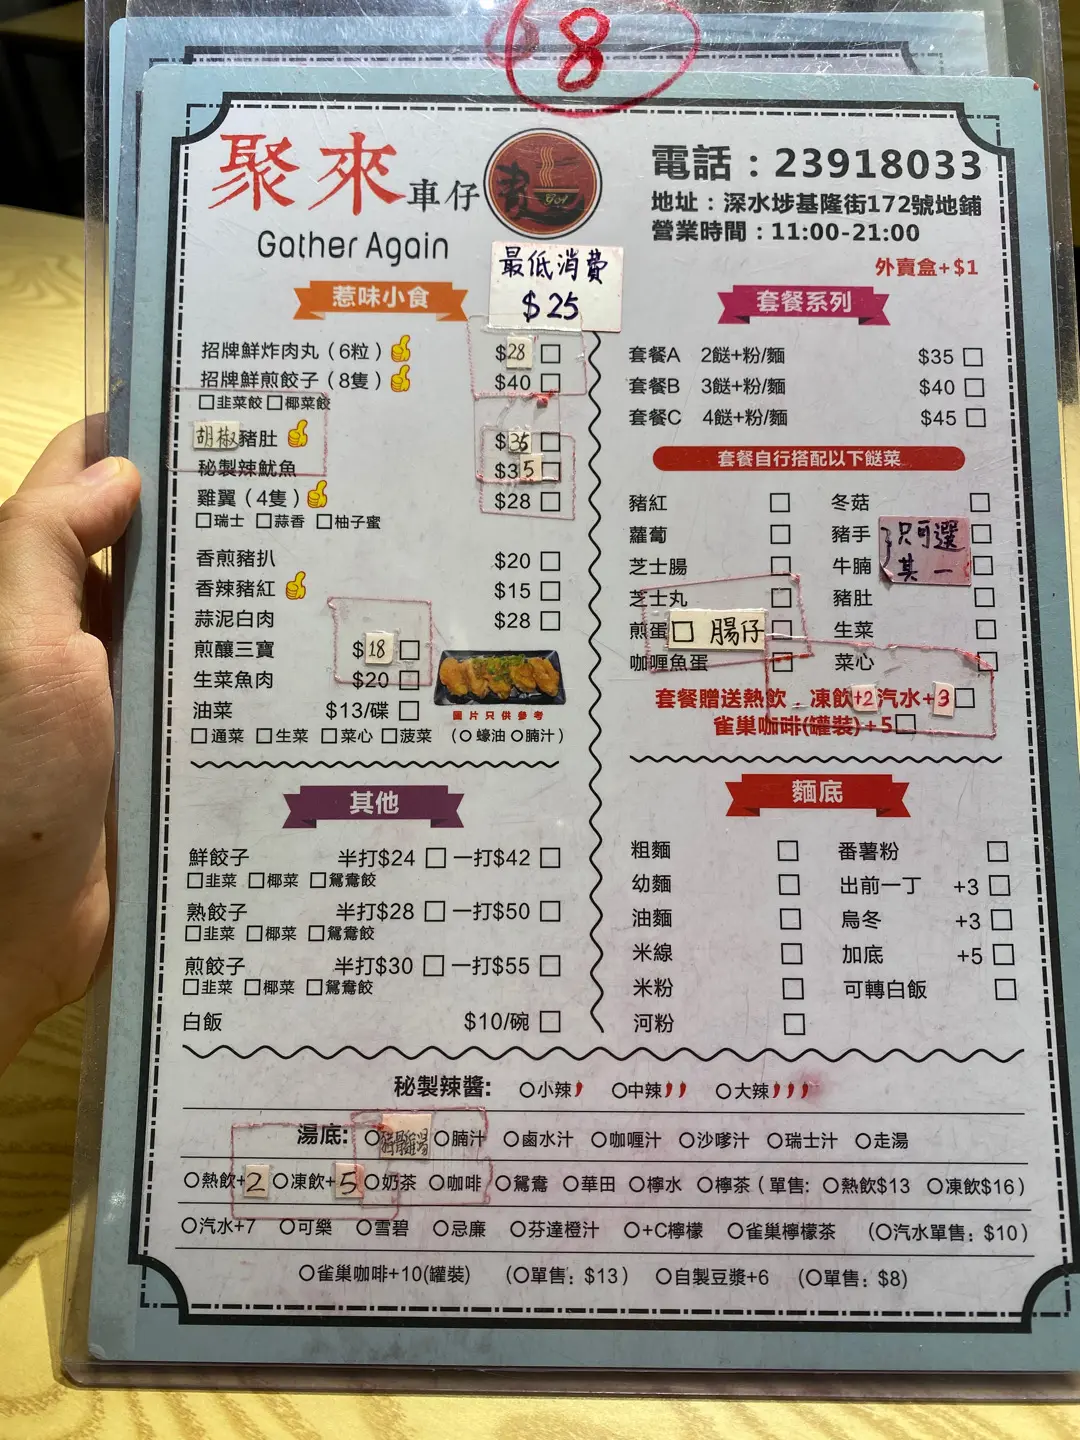 8
聚來車仔
Gather Again
電話：23918033
地址：深水埗基隆街172號地鋪
營業時間：11:00-21:00
外賣盒+$1
最低消費
$25
惹味小食
招牌鮮炸肉丸（6粒） $28 □
招牌鮮煎餃子（8隻） $40 □
□韭菜餃 □椰菜餃
胡椒豬肚 $35 □
秘製辣魷魚 $35 □
雞翼（4隻） $28 □
□瑞士 □蒜香 □柚子蜜
香煎豬扒 $20 □
香辣豬紅 $15 □
蒜泥白肉 $28 □
煎釀三寶 $18 □
生菜魚肉 $20 □
油菜 $13/碟 □
□通菜 □生菜 □菜心 □菠菜 （○蠔油 ○腩汁）
圖片只供參考
套餐系列
套餐A 2餸+粉/麵 $35 □
套餐B 3餸+粉/麵 $40 □
套餐C 4餸+粉/麵 $45 □
套餐自行搭配以下餸菜
豬紅 □ 冬菇 □
蘿蔔 □ 豬手 □
芝士腸 □ 牛腩 □
只可選
其一
芝士丸 □ 豬肚 □
煎蛋 □ 腸仔 □ 生菜 □
咖喱魚蛋 □ 菜心 □
套餐贈送熱飲，凍飲+2汽水+3 □
雀巢咖啡(罐裝)+5 □
其他
鮮餃子 半打$24 □ 一打$42 □
□韭菜 □椰菜 □鴛鴦餃
熟餃子 半打$28 □ 一打$50 □
□韭菜 □椰菜 □鴛鴦餃
煎餃子 半打$30 □ 一打$55 □
□韭菜 □椰菜 □鴛鴦餃
白飯 $10/碗 □
麵底
粗麵 □ 番薯粉 □
幼麵 □ 出前一丁 +3 □
油麵 □ 烏冬 +3 □
米線 □ 加底 +5 □
米粉 □ 可轉白飯 □
河粉 □
秘製辣醬: ○小辣 ○中辣 ○大辣
湯底: ○ ○腩汁 ○鹵水汁 ○咖喱汁 ○沙嗲汁 ○瑞士汁 ○走湯
○熱飲+2 ○凍飲+5 ○奶茶 ○咖啡 ○鴛鴦 ○華田 ○檸水 ○檸茶（單售: ○熱飲$13 ○凍飲$16）
○汽水+7 ○可樂 ○雪碧 ○忌廉 ○芬達橙汁 ○+C檸檬 ○雀巢檸檬茶 （○汽水單售: $10）
○雀巢咖啡+10(罐裝) （○單售: $13） ○自製豆漿+6 （○單售: $8）